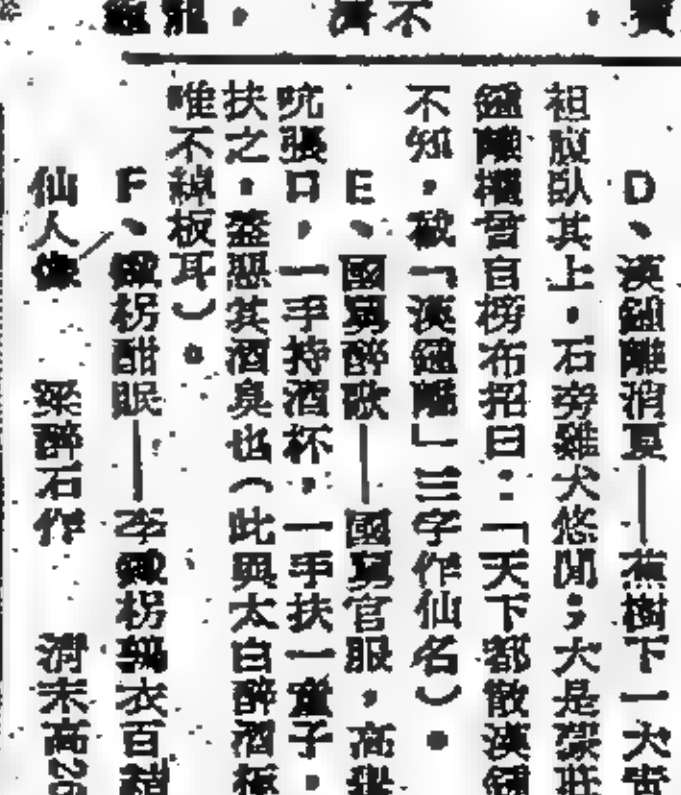 D、漢鍾離消夏——蕉樹下一大
袒腹臥其上。石旁雞犬悠閒；大是
鍾離權嘗自榜布招曰：「天下都散漢鍾
不知，破「漢鍾離」三字作仙名）。
E、國舅醉歌——國舅官服，高
吭張口，一手持酒杯，一手扶一童子。
扶之。蓋惡其酒臭也（此與太白醉酒極
唯不綽板耳）。
F、鐵枴酣眠——李鐵枴鶉衣百結
仙人像 梁醉石作 清末高26